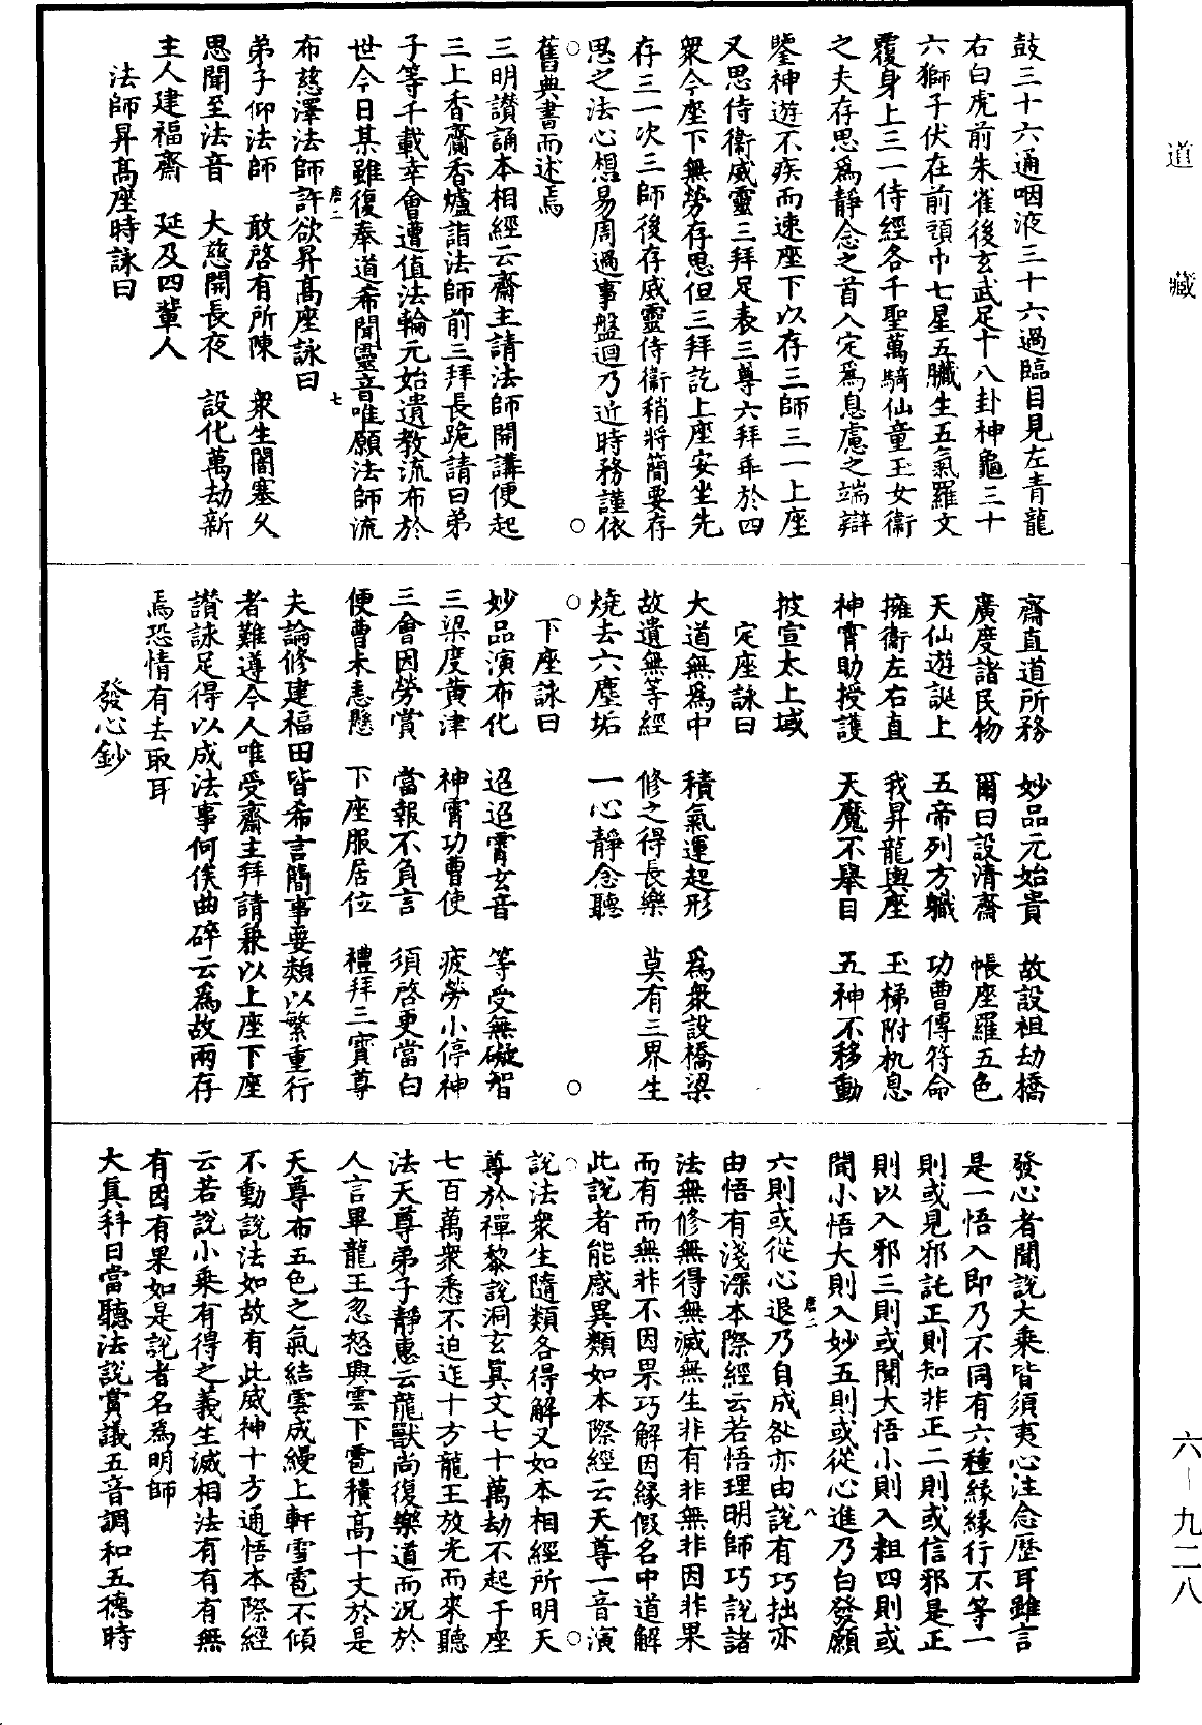 道藏
鼓三十六通咽液三十六過臨目見左青龍
右白虎前朱雀後玄武足十八卦神龜三十
六獅子伏在前頭巾七星五臟生五氣羅文
覆身上三一侍經各千聖萬騎仙童玉女衞
之夫存思爲靜念之首入定爲息慮之端辯
鑒神遊不疾而速座下以存三師三一上座
又思侍衞威靈三拜足表三尊六拜乖於四
衆今座下無勞存思但三拜訖上座安坐先
存三一次三師後存威靈侍衞稍將簡要存
思之法心想易周過事盤迴乃近時務謹依
舊典書而述焉
三明讃誦本相經云齋主請法師開講便起
三上香齎香爐詣法師前三拜長跪請曰弟
子等千載幸會遭值法輪元始遺教流布於
世今日某雖復奉道希聞靈音唯願法師流
布慈澤法師許欲昇高座詠曰
唐二
七
弟子仰法師　敢啓有所陳　衆生闇塞久
思聞至法音　大慈開長夜　設化萬劫新
主人建福齋　延及四輩人
法師昇高座時詠曰
齋直道所務　妙品元始貴　故設祖劫橋
廣度諸民物　爾日設清齋　帳座羅五色
天仙遊誕上　五帝列方軄　功曹傳符命
擁衞左右直　我昇龍輿座　玉梯附机息
神霄助授護　天魔不舉目　五神不移動
披宣太上域
定座詠曰
大道無爲中　積氣運起形　爲衆設橋梁
故遺無等經　修之得長樂　莫有三界生
燒去六塵垢　一心靜念聽
下座詠曰
妙品演布化　迢迢霄玄音　等受無礙智
三梁度黄津　神霄功曹使　疲勞小停神
三會因勞賞　當報不負言　須啓更當白
便曹未恚懸　下座服居位　禮拜三寶尊
夫論修建福田皆希言簡事要類以繁重行
者難遵今人唯受齋主拜請兼以上座下座
讃詠足得以成法事何俟曲碎云爲故兩存
焉恐情有去取耳
發心鈔
發心者聞說大乘皆須夷心注念歷耳雖言
是一悟入即乃不同有六種緣緣行不等一
則或見邪託正則知非正二則或信邪是正
則以入邪三則或聞大悟小則入粗四則或
聞小悟大則入妙五則或從心進乃白發願
六則或從心退乃自成敓亦由說有巧拙亦
唐二
八
由悟有淺深本際經云若悟理明師巧說諸
法無修無得無滅無生非有非無非因非果
而有而無非不因果巧解因緣假名中道解
此說者能感異類如本際經云天尊一音演
說法衆生隨類各得解又如本相經所明天
尊於禪黎說洞玄真文七十萬劫不起于座
七百萬衆悉不迫迮十方龍王放光而來聽
法天尊弟子靜惠云龍獸尚復樂道而況於
人言畢龍王忽怒興雲下雹積高十丈於是
天尊布五色之氣結雲成縵上軒雪雹不傾
不動說法如故有此威神十方通悟本際經
云若說小乘有得之義生滅相法有有有無
有因有果如是說者名爲明師
大真科曰當聽法說賞議五音調和五德時
六－九二八